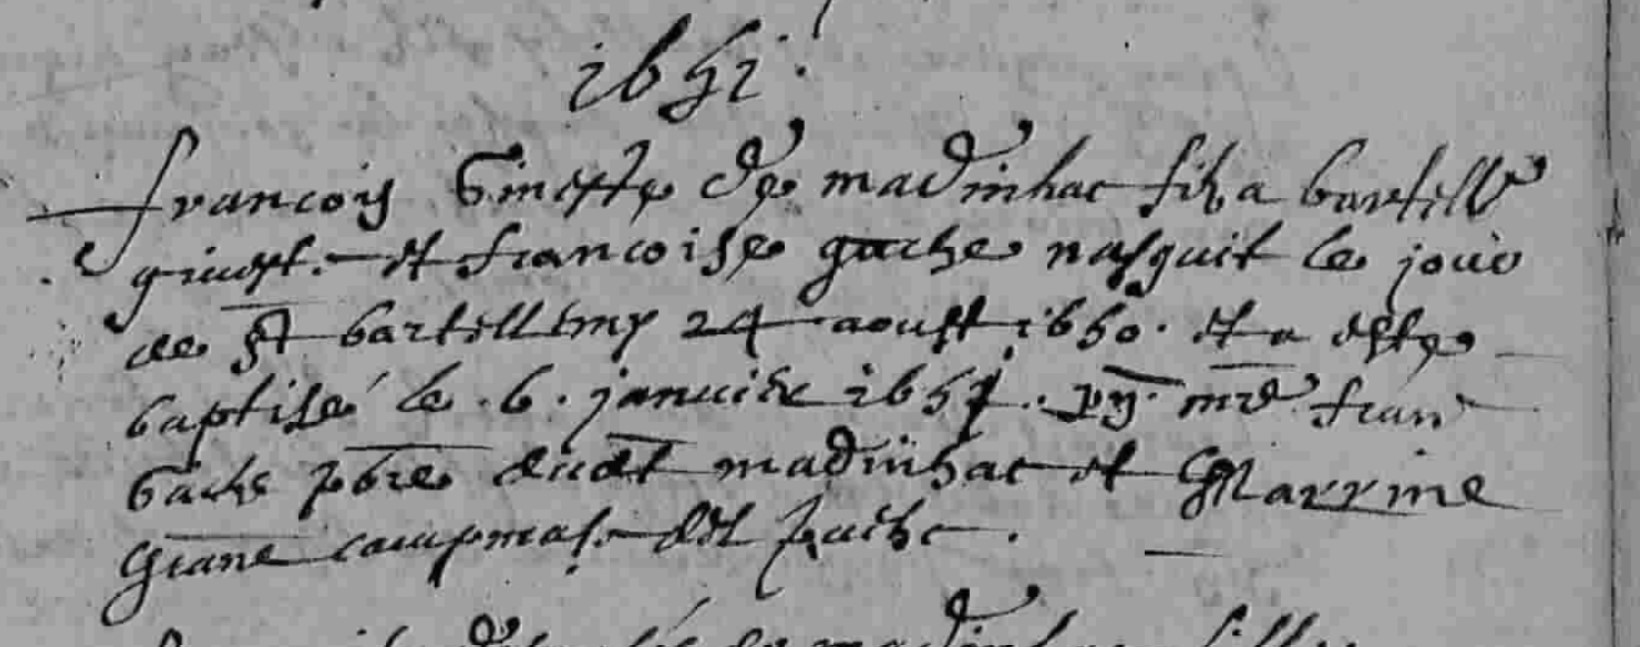 1651
francoys Gineste de madinhac filz a bartille
ginest. et francoise gache nasquit le jour
de st bartillemy 24 aoust 1650. et a este
baptisé le .6. janvier 1651. pn. mre fran
Gache pbre dudt madinhac et Marrine
Giane campmas. dt